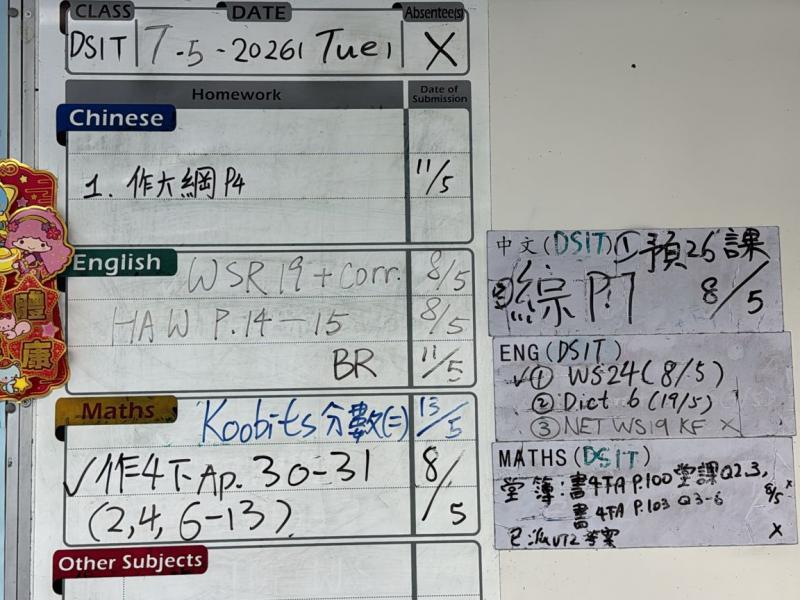 CLASS DATE Absentee(s)
DSIT 7-5-2026 Tue X
Homework Date of Submission
Chinese
1. 作大綱 P4 11/5
English
WSR 19 + Corr. 8/5
HAW P.14-15 8/5
BR 11/5
Maths
Koobits 分數(二) 13/5
✓作4下A p.30-31 8/5
(2,4,6-13)
Other Subjects
體
康
中文(DSIT) ① 預26課
② 綜P.7 8/5
ENG (DSIT)
✓① WS24 (8/5)
② Dict 6 (19/5)
③ NET WS19 KF X
MATHS (DSIT)
堂簿: 書4下A P.100 堂課Q2.3, 8/5 x
書4下A P.103 Q3-6
已派 答案 X